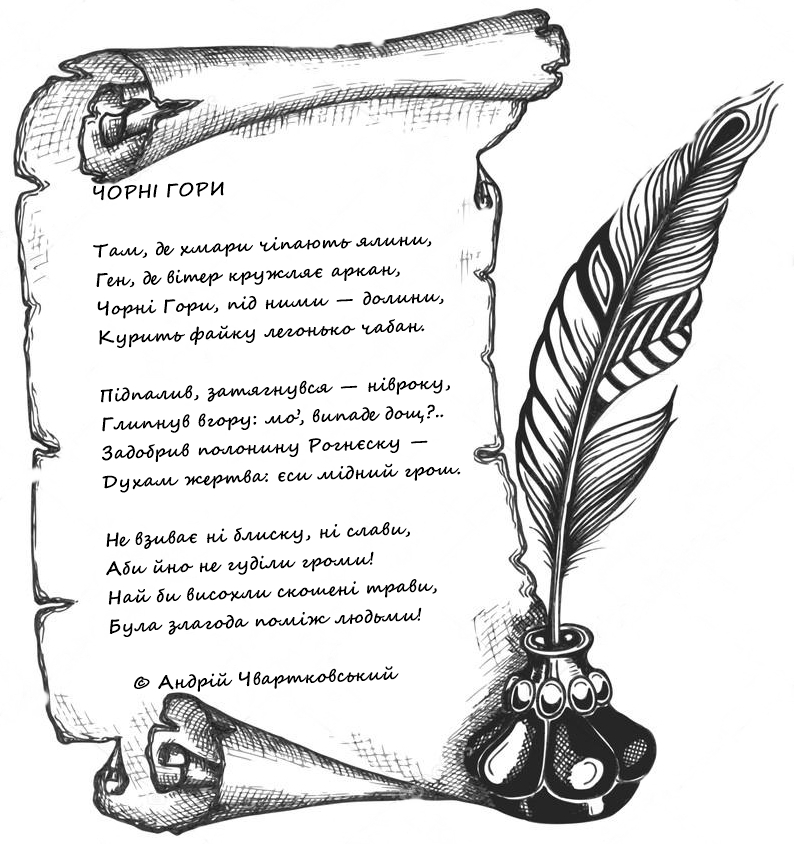 ЧОРНІ ГОРИ
Там, де хмари чіпають ялини,
Ген, де вітер кружляє аркан,
Чорні Гори, під ними — долини,
Курить файку легонько чабан.
Підпалив, затягнувся — нівроку,
Глипнув вгору: мо', випаде дощ?..
Задобрив полонину Рогнєску —
Духам жертва: єси мідний грош.
Не взиває ні блиску, ні слави,
Аби йно не гуділи громи!
Най би висохли скошені трави,
Була злагода поміж людьми!
© Андрій Чвартковський